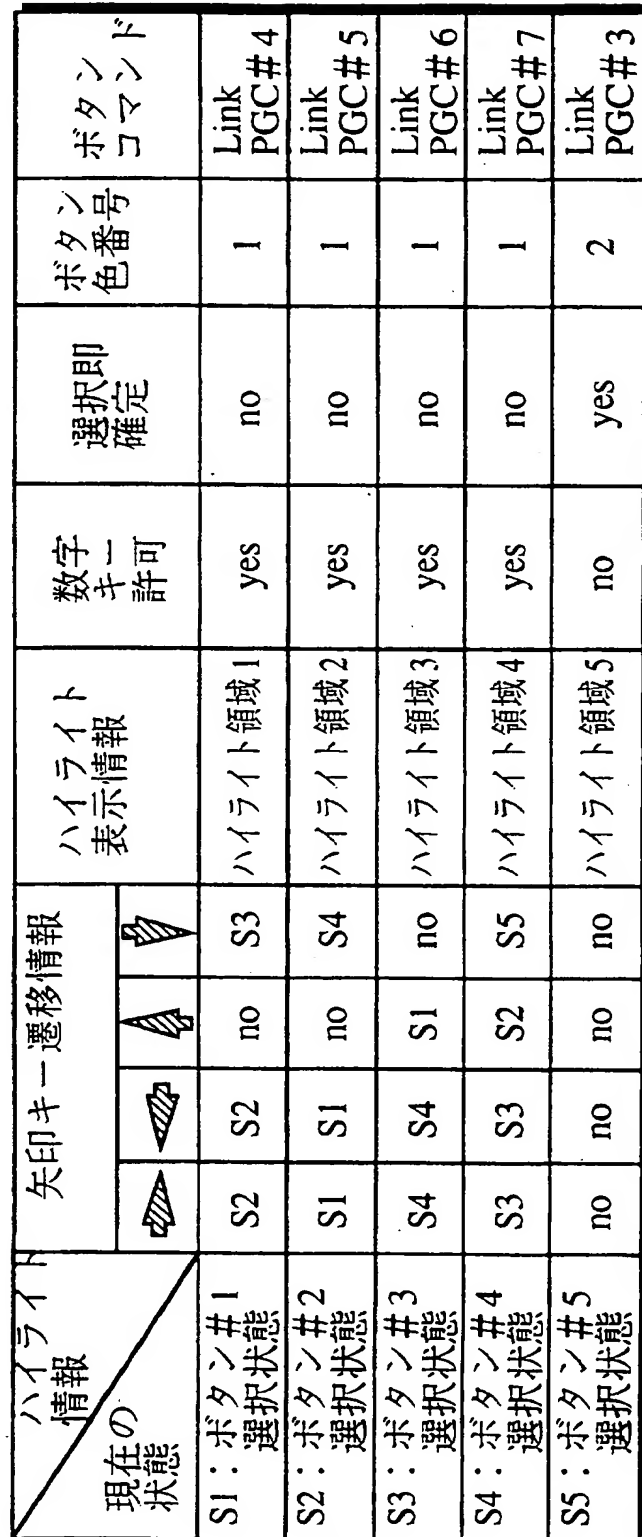 ハイライト
情報
現在の
状態
矢印キー遷移情報
ハイライト
表示情報
数字
キー
許可
選択即
確定
ボタン
色番号
ボタン
コマンド
S1：ボタン＃1
選択状態
S2 S2 no S3 ハイライト領域1 yes no 1
Link
PGC＃4
S2：ボタン＃2
選択状態
S1 S1 no S4 ハイライト領域2 yes no 1
Link
PGC＃5
S3：ボタン＃3
選択状態
S4 S4 S1 no ハイライト領域3 yes no 1
Link
PGC＃6
S4：ボタン＃4
選択状態
S3 S3 S2 S5 ハイライト領域4 yes no 1
Link
PGC＃7
S5：ボタン＃5
選択状態
no no no no ハイライト領域5 no yes 2
Link
PGC＃3